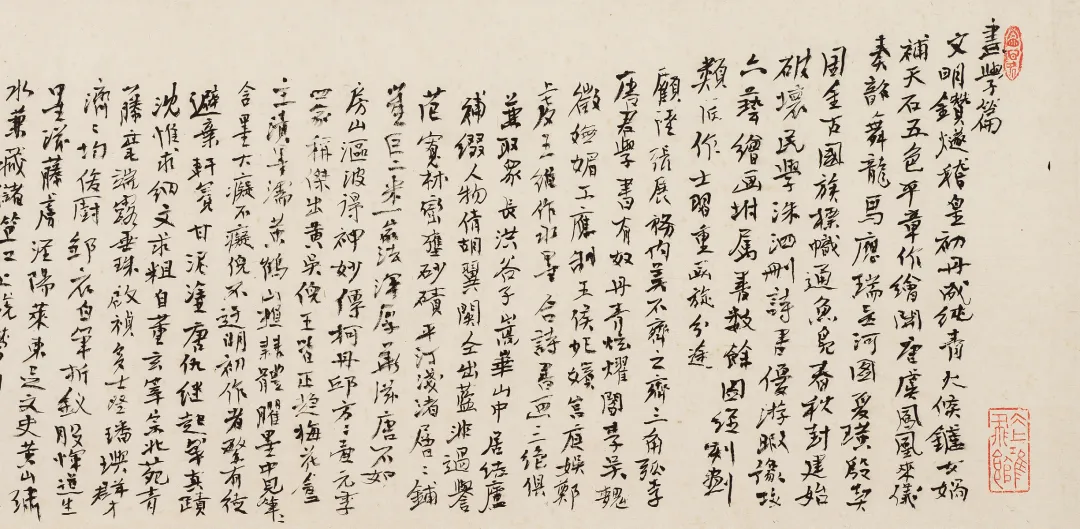 畫學篇
文明鑽燧稽皇初丹成純青火候鑪女媧
補天石五色平章作繪開唐虞鳳凰來儀
奏韶舞龍馬應瑞呈河圖爰璜殷契
國金古國族標幟通魚鳧春秋封建始
破壞民學洙泗刪詩書優游暇豫攻
六藝繪画坿屬善數餘圖經刻劃
類臣作士習重画旋分途
顧陸張展務內美不齊之齊三角弧李
唐君學畫有奴丹青炫耀閻李吳魏
徵嫵媚工應制王侯妃嬪宮庭娛鄭
虔王維作水墨合詩書画三絕俱
兼取眾長洪谷子嵩華山中居結廬
補綴人物倩胡翼關仝出藍非過譽
范寬林巒壅砂磧平汀淺渚層層鋪
董巨二米一家法渾厚華滋唐不如
房山漚波得神妙傳柯丹邱方方壺元季
四家稱傑出黃吳倪王皆正趨梅花盦
主漬墨濡黃鶴山樵隸體臞墨中見筆筆
含墨大癡不癡倪不迂明初作者繁有徒
避棄軒冕甘泥塗唐仇繼起眛真蹟
沈惟求細文求粗自董玄宰宗北苑青
藤端露垂珠啟禎多士登璠璵
濟濟鄒衣白筆折釵股惲道生
墨滋藤膚涇陽萊東足文史黃山
水兼